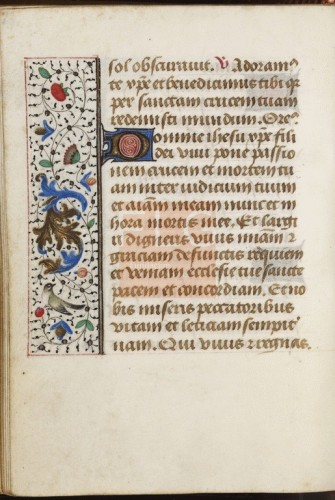 sol obscuravit. V Adoram⁹
te xp̄e et benedicimus tibi qr
per sanctam crucem tuam
redemisti mundum. Ore⁹
Domine ihesu xp̄e fili
dei vivi pone passio
nem crucem et mortem tu
am inter iudicium tuum
et aīam meam nunc et in
hora mortis mee. Et largi
ri digneris vivis miām ⁊
graciam defunctis requiem
et veniam ecclesie tue sancte
pacem et concordiam. Et no
bis miseris peccatoribus
vitam et leticiam sempit̄
nam. Qui vivis ⁊ regnas.